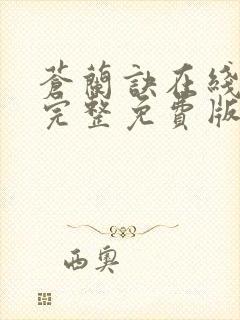 蒼蘭訣在綫
完整免費版
西奥